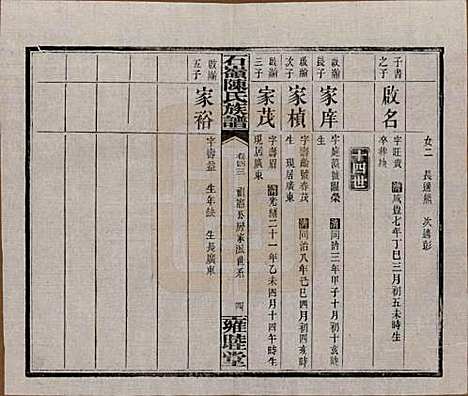 女二 長適熊 次適彭
子書
之子
啟名
字旺貴 清咸豐七年丁巳三月初五未時生
十四世
啟瀚
長子
家庠
字 號國榮 清同治三年甲子十月十亥時
生
啟瀚
次子
家楨
字壽 號春茂 清同治八年己巳四月初四亥時
生
啟瀚
三子
家茂
字壽眉 清光緒二十一年乙未四月十四午時生
現居廣東
石嶺陳氏族譜
卷四三
公房家派世系
四
雍睦堂
啟瀚
五子
家裕
字壽益 生年缺 生長廣東